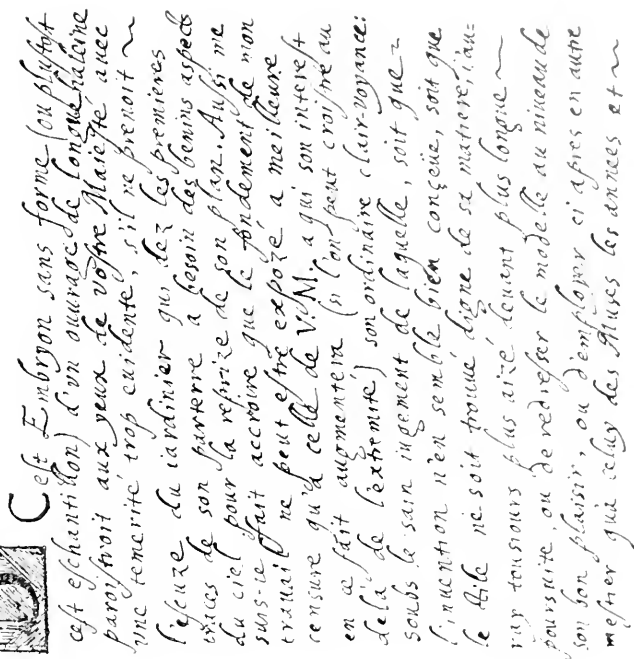 Cest Embryon sans forme (ou plustost
cest eschantillon) d'vn ouurage de longue haleine
paroistroit aux yeux de vostre Maiesté auec
vne temerité trop euidente, s'il ne prenoit ~
l'escuze du iardinier qui dez les premieres
traces de son parterre a besoin des benins aspects
du ciel pour la reprize de son plan. Aussi me
suis-ie fait accroire que le fondement de mon
trauail ne peut estre expozé a meilleure
censure qu'a celle de V. M. a qui son interest
en ce fait augmentera (si l'on peut croistre au
dela de l'extremité) son ordinaire clair-voyance:
soubs le sain iugement de laquelle, soit que ~
l'inuention n'en semble bien conçeüe, soit que
le stile ne soit trouué digne de sa matiere, i'au=
ray tousiours plus aizé deuant plus longue ~
poursuite, ou de redresser le modelle au niueau de
son bon plaisir, ou d'employer ci apres en autre
mestier qu'a celuy des Muses les années et ~